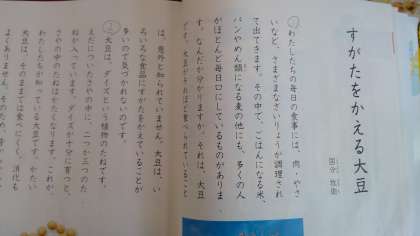 すがたをかえる大豆
国分 牧衛
①わたしたちの毎日の食事には、肉・やさ
いなど、さまざまなざいりょうが調理され
て出てきます。その中で、ごはんになる米、
パンやめん類になる麦の他にも、多くの人
がほとんど毎日口にしているものがありま
す。なんだか分かりますか。それは、大豆
です。大豆がそれほど食べられていること
は、意外と知られていません。大豆は、い
ろいろな食品にすがたをかえていることが
多いので気づかれないのです。
②大豆は、ダイズという植物のたねです。
えだについたさやの中に、二つか三つのた
ねが入っています。ダイズが十分に育つと、
さやの中のたねはかたくなります。これが、
わたしたちが知っている大豆です。かたい
大豆は、そのままでは食べにくく、消化も
よくありません。そのため、